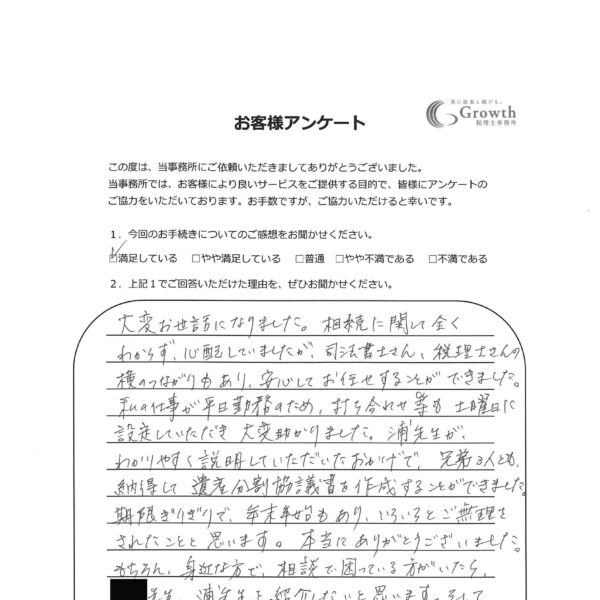 共に成長し続ける。
Growth
税理士事務所
お客様アンケート
この度は、当事務所にご依頼いただきましてありがとうございました。
当事務所では、お客様により良いサービスをご提供する目的で、皆様にアンケートの
ご協力をいただいております。お手数ですが、ご協力いただけると幸いです。
1．今回のお手続きについてのご感想をお聞かせください。
☑満足している □やや満足している □普通 □やや不満である □不満である
2．上記1でご回答いただけた理由を、ぜひお聞かせください。
大変お世話になりました。相続に関して全く
わからず、心配していましたが、司法書士さん、税理士さんの
横のつながりもあり、安心してお任せすることができました。
私の仕事が平日勤務のため、打ち合わせ等も土曜日に
設定していただき大変助かりました。浦先生が、
わかりやすく説明していただいたおかげで、兄弟3人とも、
納得して遺産分割協議書を作成することができました。
期限ぎりぎりで、年末年始もあり、いろいろとご無理を
されたことと思います。本当にありがとうございました。
もちろん、身近な方で、相談で困っている方がいたら、
先生、浦先生を紹介したいと思います。そして